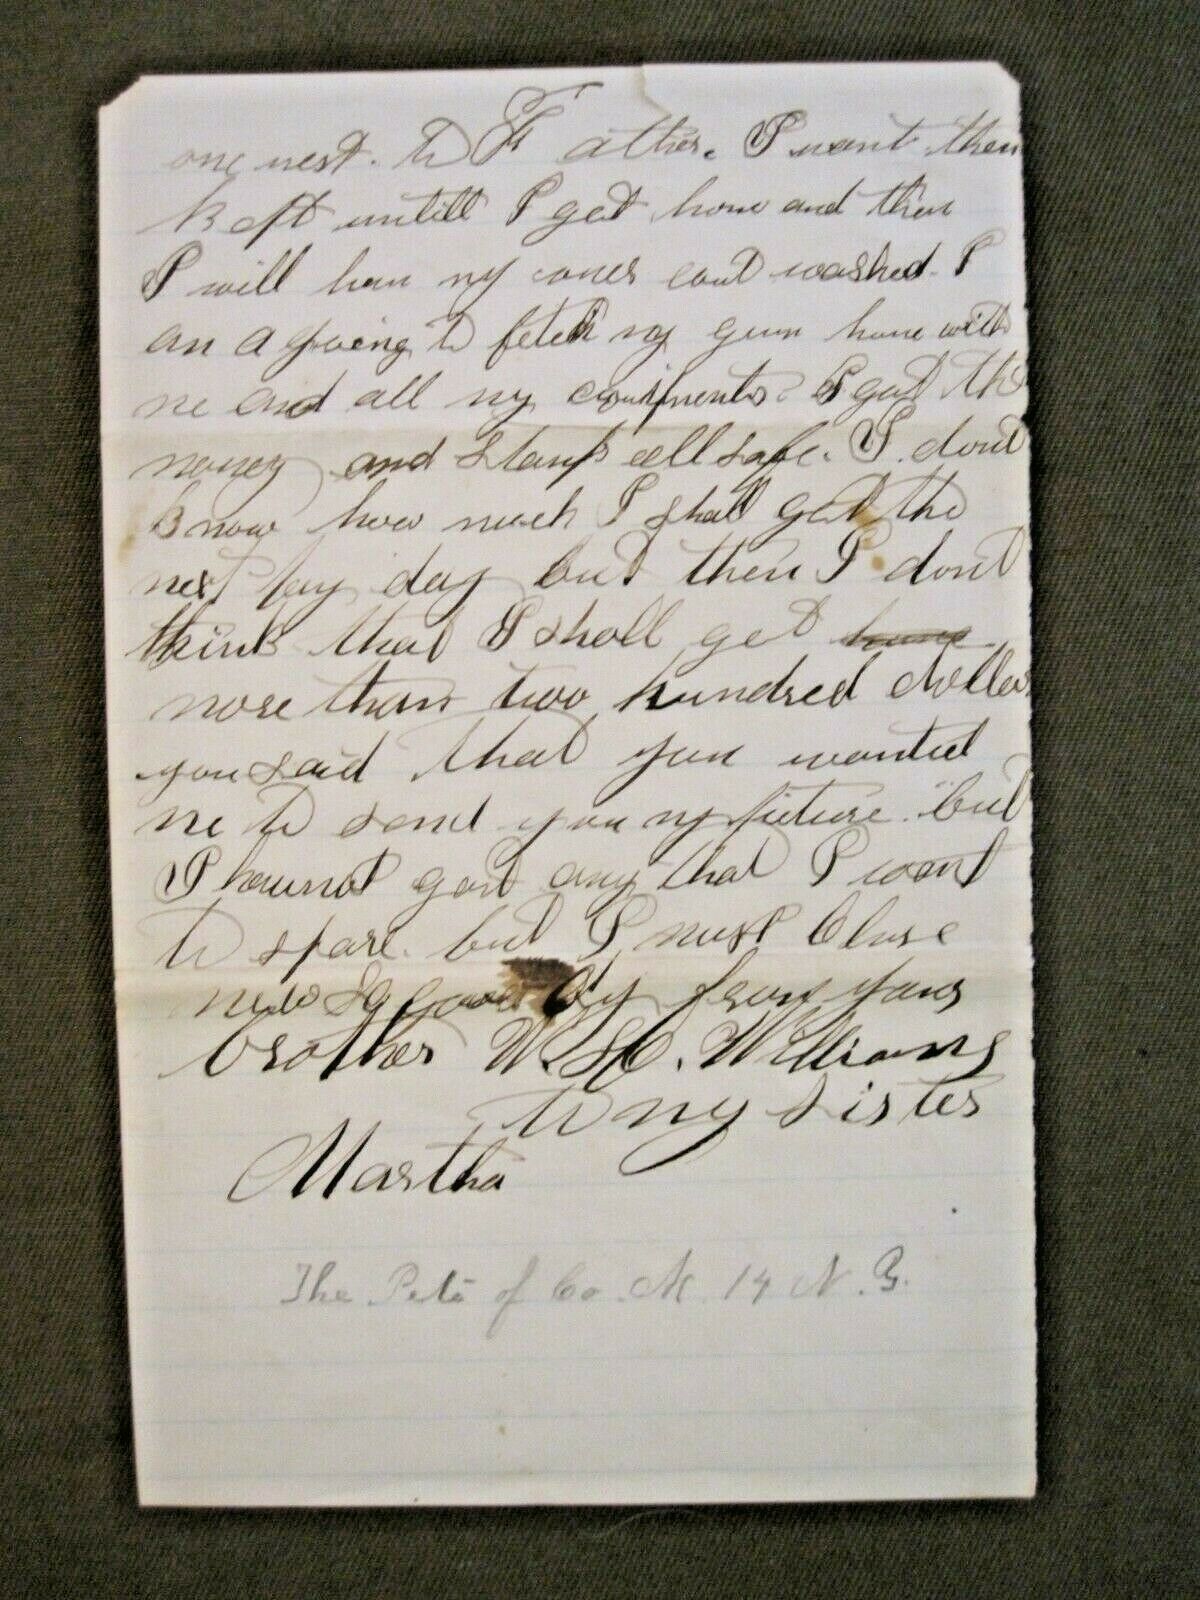 one nest. to Father. I want them
kept untill I get home and then
I will have my ones coat washed. I
am a going to fetch my gun home with
me and all my equipments. I got the
money and stamps all safe. I dont
know how much I shall get the
next pay day but then I dont
think that I shall get
more than two hundred dollars
you said that you wanted
me to send you my picture. but
I have not got any that I want
to spare. but I must Close
now So good by from your
brother W. H. Williams
to my sister
Martha
The Pets of Co. M. 14 N. Y.